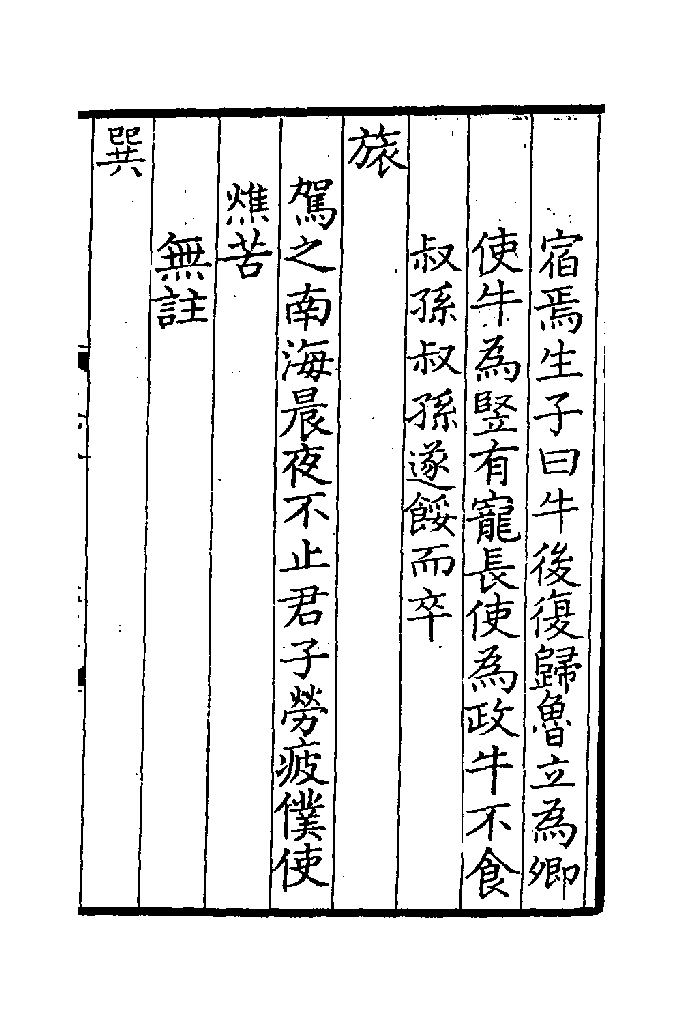 宿焉生子曰牛後復歸魯立為卿
使牛為豎有寵長使為政牛不食
叔孫叔孫遂餒而卒
旅
駕之南海晨夜不止君子勞疲僕使
憔苦
無註
巽